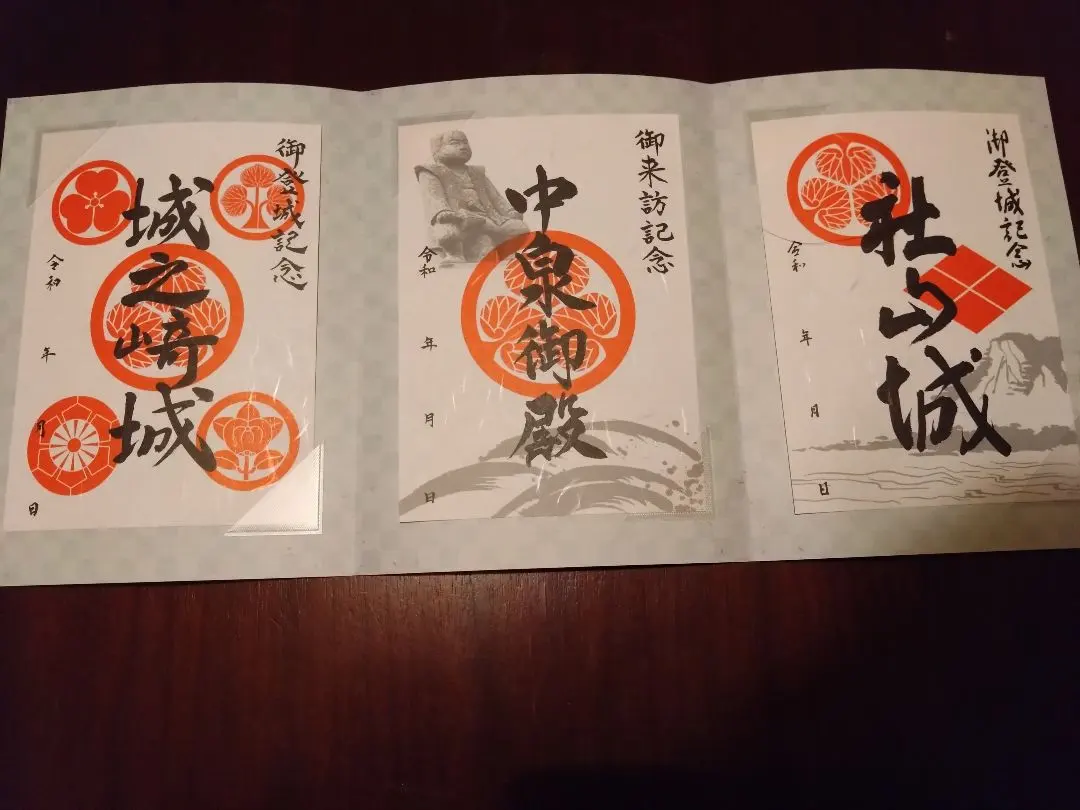 御登城記念
城之崎城
令和
年
月
日
御来訪記念
中泉御殿
令和
年
月
日
御登城記念
社山城
令和
年
月
日